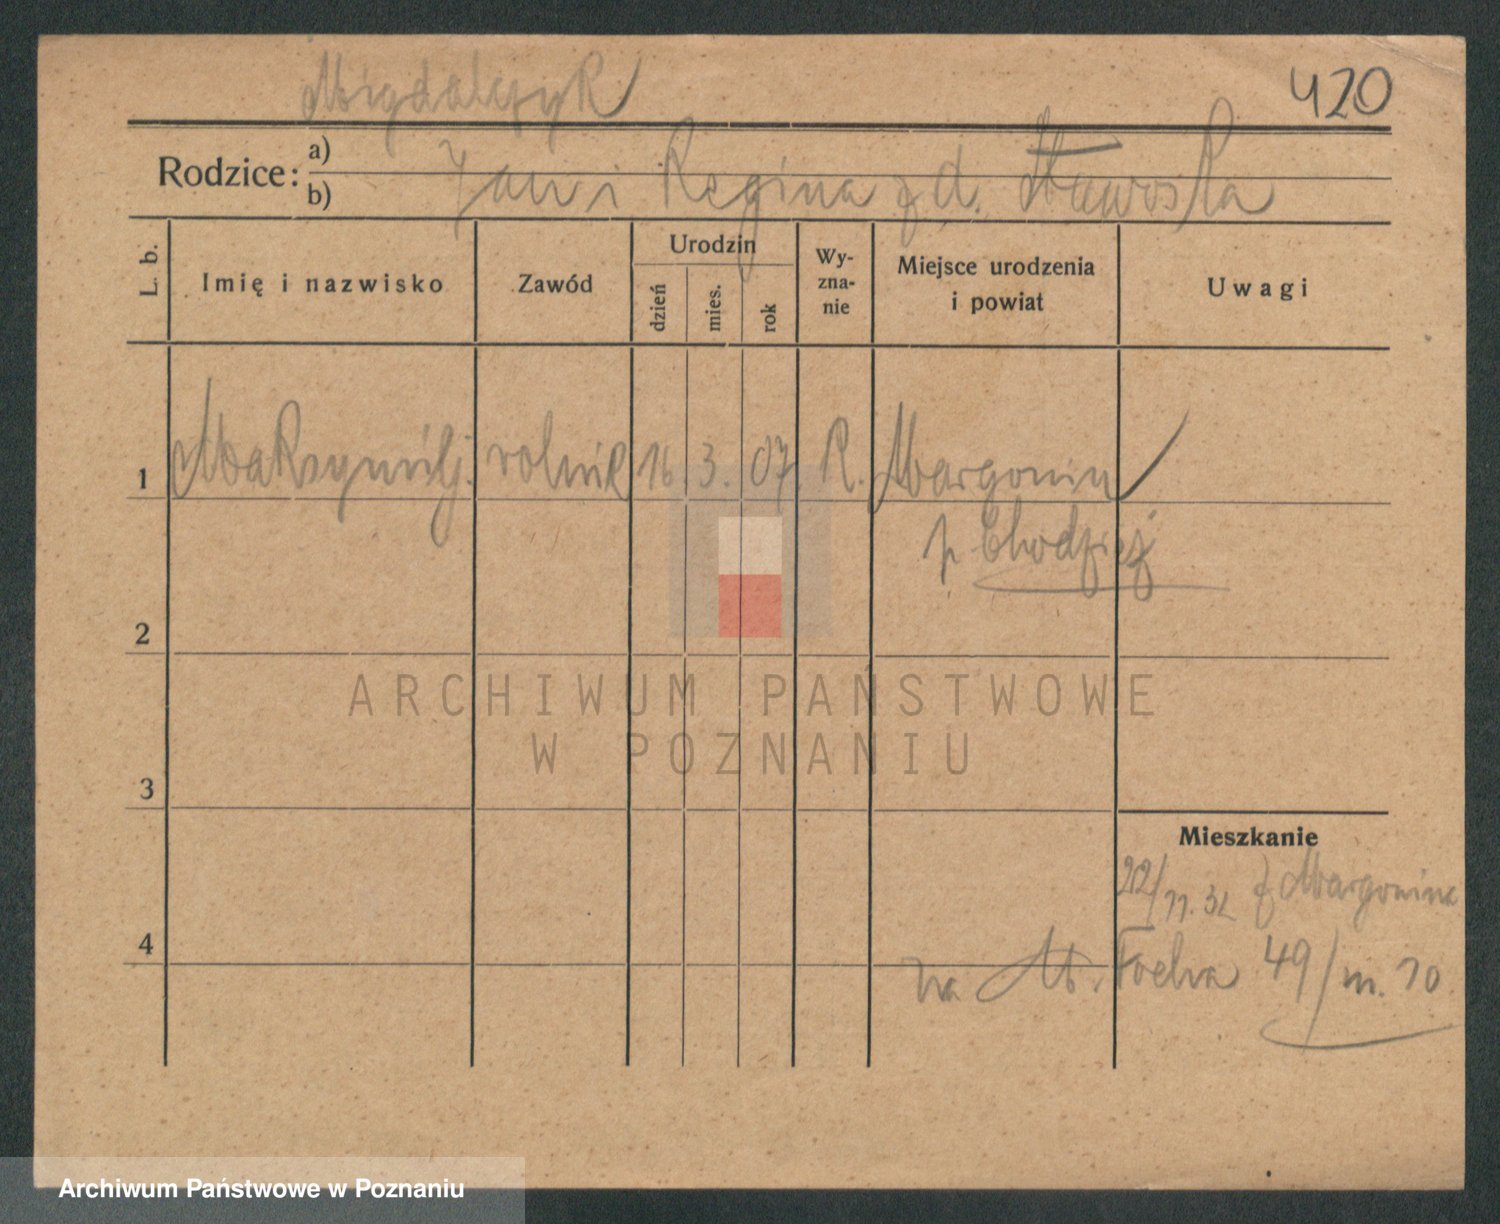 420
Migdalczyk
Rodzice: a)
b)
Jan i Regina z d. Stawoska
L. b.
Imię i nazwisko
Zawód
Urodzin
dzień
mies.
rok
Wy-
zna-
nie
Miejsce urodzenia
i powiat
Uwagi
1 Maksymilj. rolnik 16 3. 07 R. Margonin
p Chodzież
2
ARCHIWUM PAŃSTWOWE
W POZNANIU
3
Mieszkanie
22/11. 32 z Margonina
4
na M. Focha 49/m. 10
Archiwum Państwowe w Poznaniu